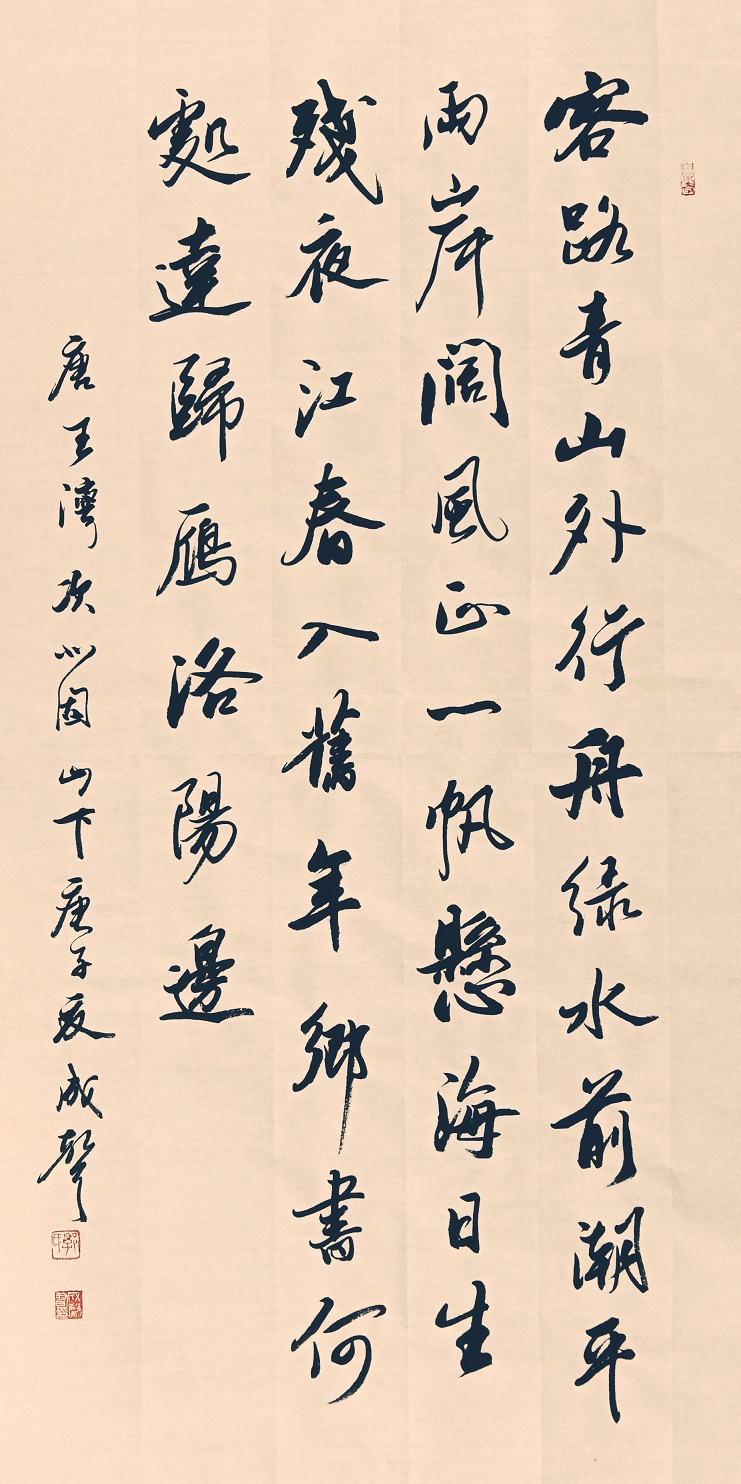 客路青山外行舟绿水前潮平
兩岸闊風正一帆懸海日生
殘夜江春入舊年鄉書何
處達歸雁洛陽邊
唐王灣次北固山下庚子夏成聲